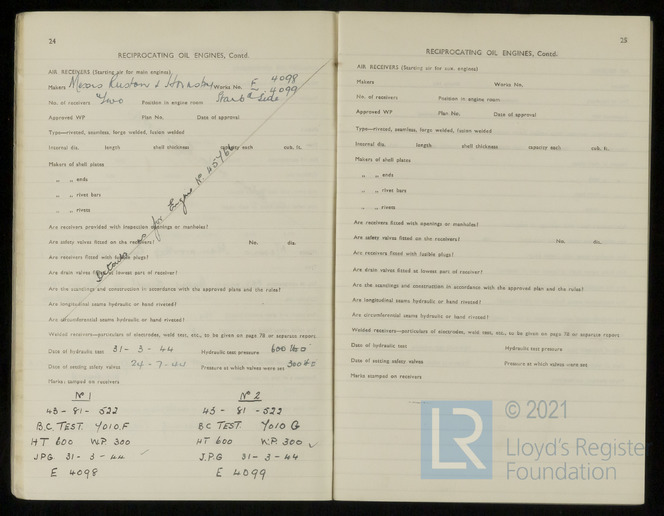 24
RECIPROCATING OIL ENGINES, Contd.
AIR RECEIVERS (Starting air for main engines)
Makers Messrs Ruston & Hornsby Works No. E 4098
4099
No. of receivers Two Position in engine room Starbd Side
Approved WP Plan No. Date of approval
Type—riveted, seamless, forge welded, fusion welded
Internal dia. length shell thickness capacity each cub. ft.
Makers of shell plates
„ „ ends
„ „ rivet bars
„ „ rivets
Details as for Engine No
Are receivers provided with inspection openings or manholes?
Are safety valves fitted on the receivers? No. dia.
Are receivers fitted with fusible plugs?
Are drain valves fitted at lowest part of receiver?
Are the scantlings and construction in accordance with the approved plan and the rules?
Are longitudinal seams hydraulic or hand riveted?
Are circumferential seams hydraulic or hand riveted?
Welded receivers—particulars of electrodes, weld test, etc., to be given on page 78 or separate report
Date of hydraulic test 31 - 3 - 44 Hydraulic test pressure 600 lbs
Date of setting safety valves 24 - 7 - 44 Pressure at which valves were set 300
Marks stamped on receivers
No 1
43 - 81 - 522
B.C. TEST. Y010.F
HT 600 W.P. 300
J.P.G. 31 - 3 - 44
E 4098
No 2
43 - 81 - 522
BC TEST. Y010 G
HT 600 W.P. 300
J.P.G 31 - 3 - 44
E 4099
25
RECIPROCATING OIL ENGINES, Contd.
AIR RECEIVERS (Starting air for aux. engines)
Makers Works No.
No. of receivers Position in engine room
Approved WP Plan No. Date of approval
Type—riveted, seamless, forge welded, fusion welded
Internal dia. length shell thickness capacity each cub. ft.
Makers of shell plates
„ „ ends
„ „ rivet bars
„ „ rivets
Are receivers fitted with openings or manholes?
Are safety valves fitted on the receivers? No. dia.
Are receivers fitted with fusible plugs?
Are drain valves fitted at lowest part of receiver?
Are the scantlings and construction in accordance with the approved plan and the rules?
Are longitudinal seams hydraulic or hand riveted?
Are circumferential seams hydraulic or hand riveted?
Welded receivers—particulars of electrodes, weld test, etc., to be given on page 78 or separate report
Date of hydraulic test Hydraulic test pressure
Date of setting safety valves Pressure at which valves were set
Marks stamped on receivers
LR
© 2021
Lloyd's Register
Foundation